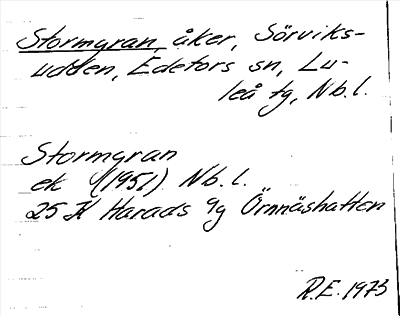 Stormgran, åker, Sörviks-
udden, Edefors sn, Lu-
leå tg, Nb. l.
Stormgran
ek (1951) Nb. l.
25 K Harads 9g Örnnäshatten
R.E. 1973